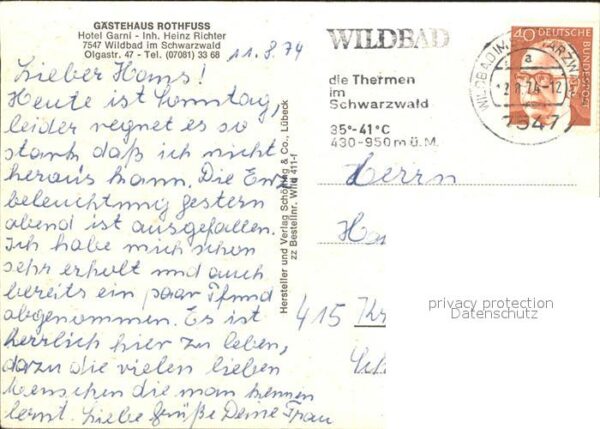 GÄSTEHAUS ROTHFUSS
Hotel Garni - Inh. Heinz Richter
7547 Wildbad im Schwarzwald
Olgastr. 47 - Tel. (07081) 33 68
11.8.74
Lieber Hans!
Heute ist Sonntag,
leider regnet es so
stark daß ich nicht
heraus kann. Die Enz
beleuchtung gestern
abend ist ausgefallen.
Ich habe mich schon
sehr erholt und auch
bereits ein paar Pfund
abgenommen. Es ist
herrlich hier zu leben,
dazu die vielen lieben
Menschen die man kennen
lernt. Liebe Grüße Deine Frau
Hersteller und Verlag Schöning & Co., Lübeck
zz Bestellnr. Wild 411-f
WILDBAD
die Thermen
im
Schwarzwald
35°-41°C
430-950m ü.M.
WILDBAD IM SCHWARZWALD
a
7547
40 DEUTSCHE BUNDESPOST
Herrn
Ha
415 Kr
privacy protection
Datenschutz